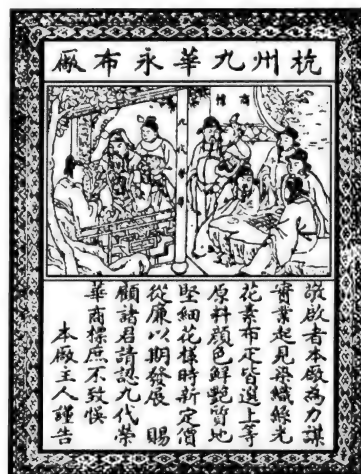 杭州九華永布廠
商標
九代榮華
謹啟者本廠為力謀
實業起見染織絲光
花素布疋皆選上等
原料顏色鮮艷質地
堅細花樣時新定價
從廉以期發展 賜
顧諸君請認九代榮
華商標庶不致悞
本廠主人謹告